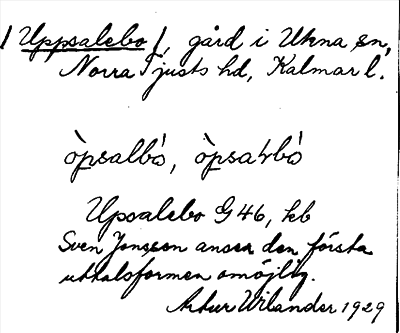 /Uppsalebo/, gård i Ukna sn,
Norra Tjusts hd, Kalmar l.
òpsalbó, òpsarbó
Upsalebo G 46, kb
Sven Jonsson anser den första
uttalsformen omöjlig.
Artur Wilander 1929